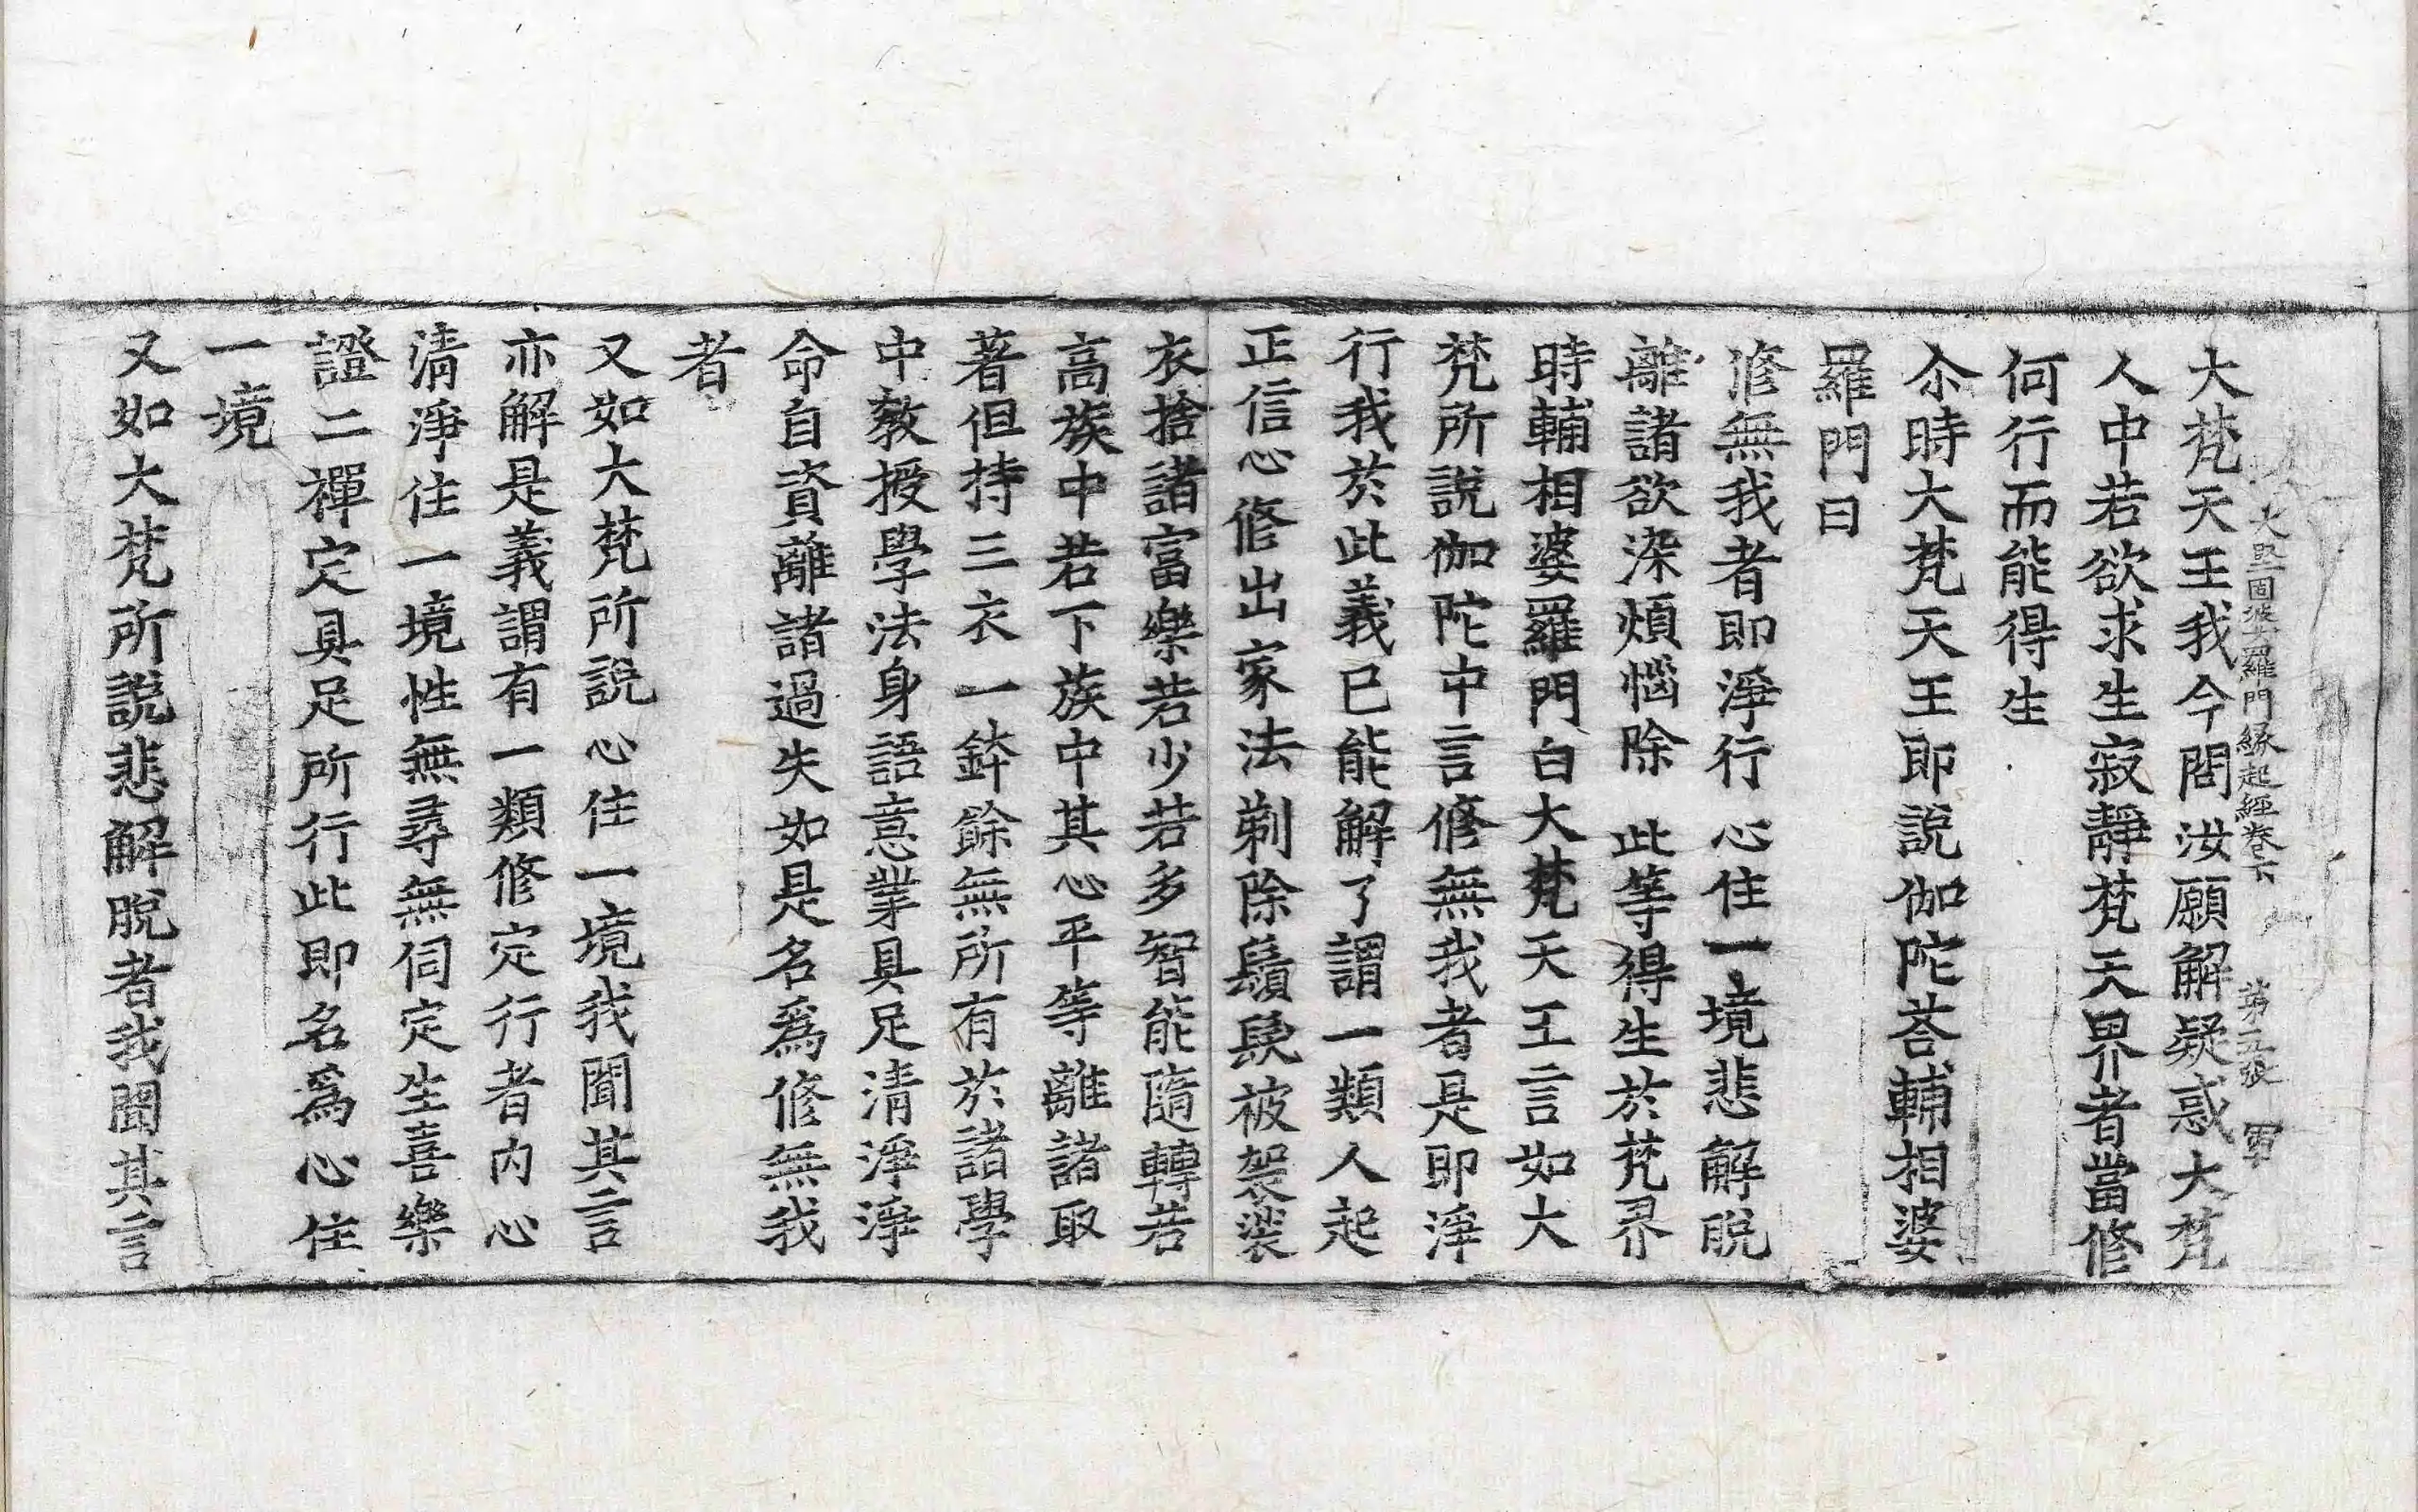 大梵天王我今問汝願解疑惑大梵
大堅固婆羅門緣起經卷下 第五張 軍
人中若欲求生寂靜梵天界者當修
何行而能得生
尒時大梵天王即說伽陀荅輔相婆
羅門曰
修無我者即淨行 心住一境悲解脫
離諸欲染煩惱除 此等得生於梵界
時輔相婆羅門白大梵天王言如大
梵所說伽陀中言修無我者是即淨
行我於此義已能解了謂一類人起
正信心修出家法剃除鬚髮被袈裟
衣捨諸富樂若少若多智能隨轉若
高族中若下族中其心平等離諸取
著但持三衣一鉢餘無所有於諸學
中教授學法身語意業具足清淨淨
命自資離諸過失如是名爲修無我
者
又如大梵所說心住一境我聞其言
亦解是義謂有一類修定行者內心
清淨住一境性無尋無伺定生喜樂
證二禪定具足所行此即名爲心住
一境
又如大梵所說悲解脫者我聞其言